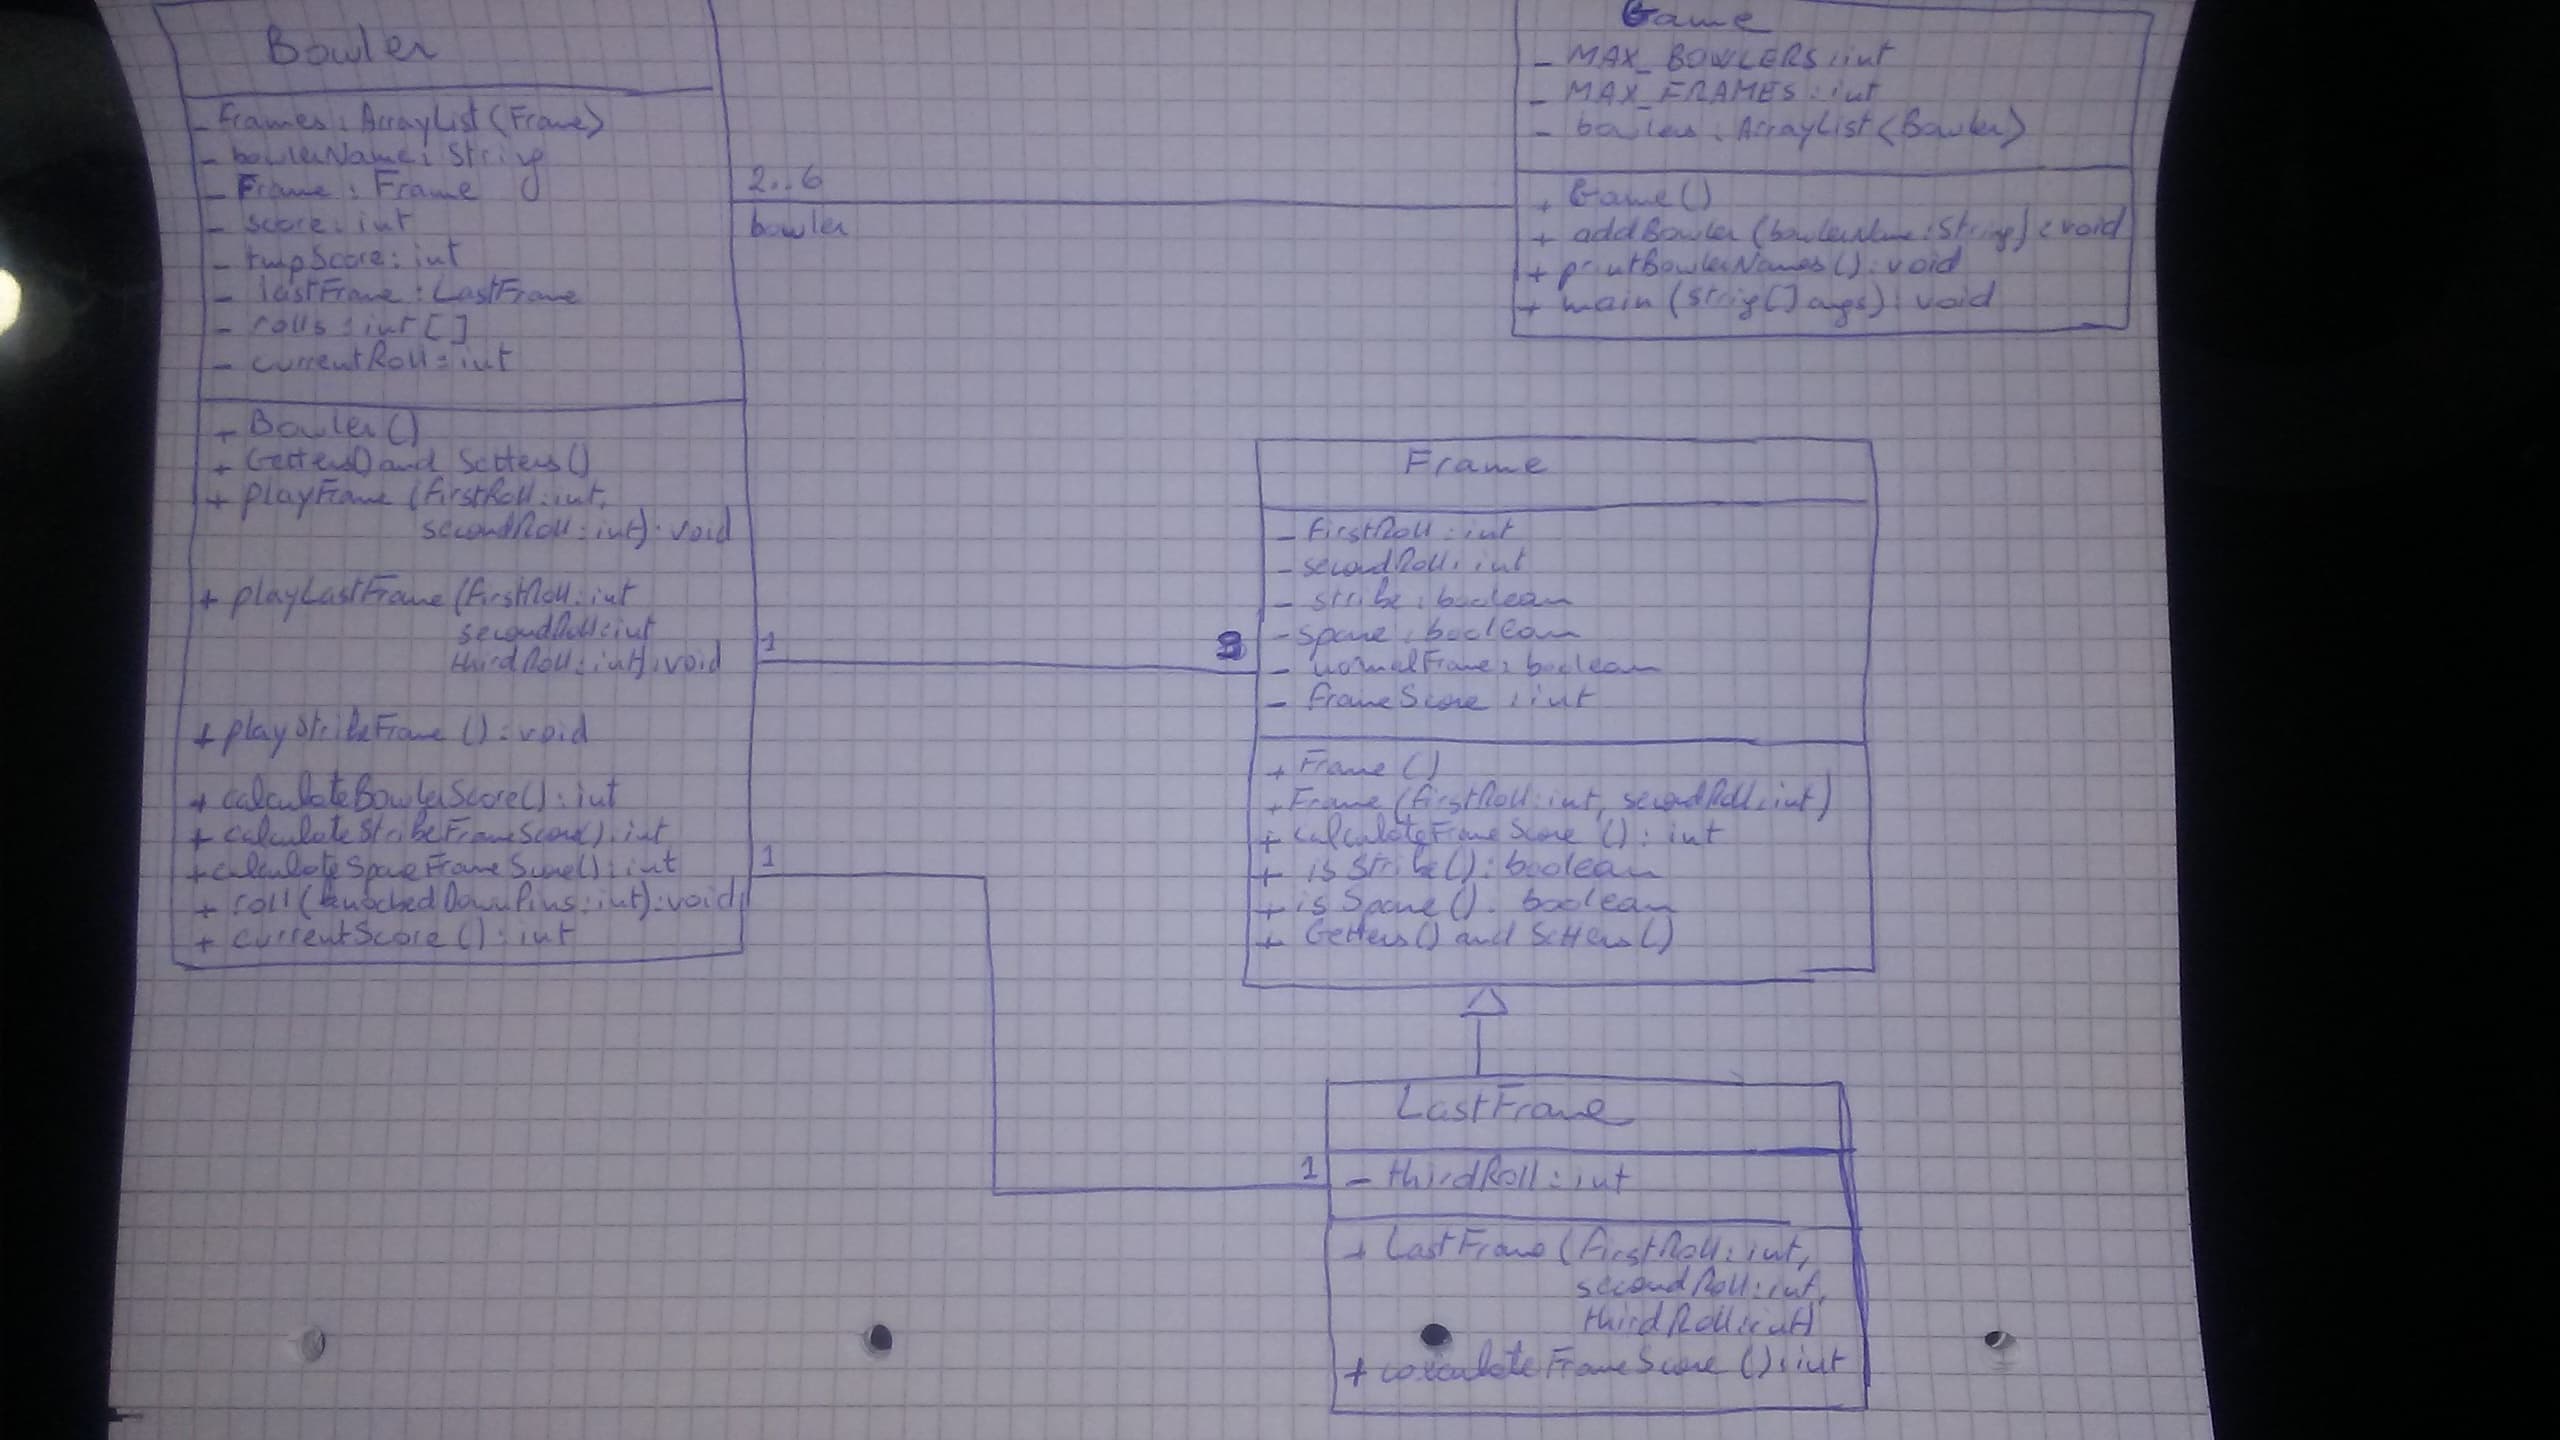 Bowler
- frames: ArrayList<Frame>
- bowlerName: String
- Frame: Frame
- score: int
- tmpScore: int
- lastFrame: LastFrame
- rolls: int[]
- currentRoll: int
+ Bowler()
+ Getters() and Setters()
+ playFrame (firstRoll: int,
secondRoll: int): void
+ playLastFrame (firstRoll: int
secondRoll: int
thirdRoll: int): void
+ playStrikeFrame (): void
+ calculateBowlerScore(): int
+ calculateStrikeFrameScore(): int
+ calculateSpareFrameScore(): int
+ roll(knockedDownPins: int): void
+ currentScore(): int
2..6
bowler
Game
- MAX_BOWLERS: int
- MAX_FRAMES: int
- bowlers: ArrayList<Bowler>
+ Game()
+ addBowler (bowlerName: String): void
+ printBowlerNames(): void
+ main (String[] args): void
1
Frame
- firstRoll: int
- secondRoll: int
- strike: boolean
- spare: boolean
- normalFrame: boolean
- frameScore: int
+ Frame()
+ Frame (firstRoll: int, secondRoll: int)
+ calculateFrameScore (): int
+ isStrike(): boolean
+ isSpare(): boolean
+ Getters() and Setters()
1
1
LastFrame
- thirdRoll: int
+ LastFrame (firstRoll: int,
secondRoll: int,
thirdRoll: int)
+ calculateFrameScore (): int